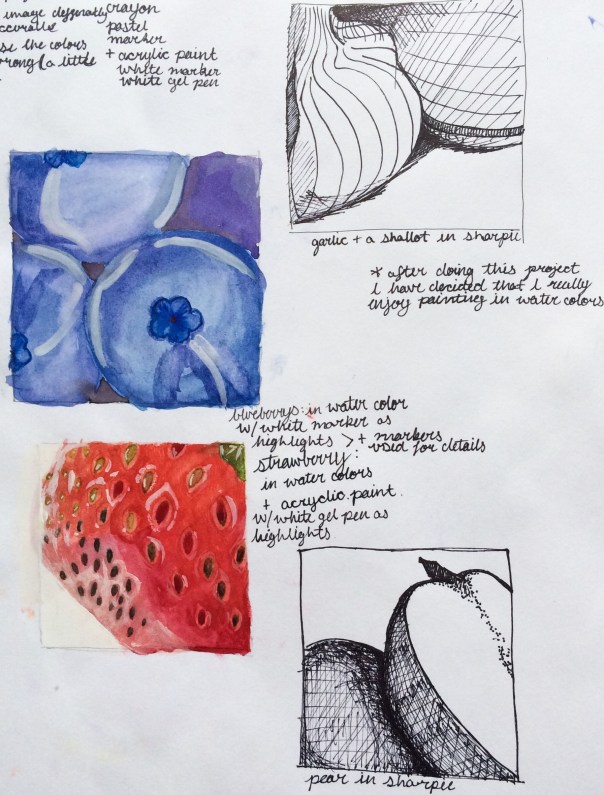 image differently
accurate
se the colors
wrong (a little
crayon
pastel
marker
+ acrylic paint
white marker
white gel pen
garlic + a shallot in sharpie
* after doing this project
i have decided that i really
enjoy painting in water colors
blueberrys: in water color
w/ white marker as
highlights > + markers
used for details
strawberry:
in water colors
+ acryclic paint.
w/ white gel pen as
highlights
pear in sharpie